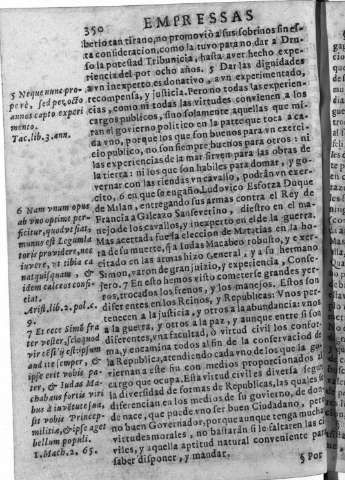 350 EMPRESSAS
iberio tan tirano, no promovió a sus sobrinos sin es-
ta consideracion, como la tuvo para no dar a Dru-
so la potestad Tribunicia, hasta aver hecho expe-
riencia del por ocho años. 5 Dar las dignidades
a vn inexperto es donativo, a vn experimentado,
recompensa, y justicia. Pero no todas las experien-
cias, como ni todas las virtudes convienen a los
cargos publicos, sino solamente aquellas que mi-
ran el governo politico en la parte que toca a ca-
da vno, porque los que son buenos para vn exerci-
cio publico, no son siempre buenos para otros; ni
las experiencias de la mar sirven para las obras de
la tierra: ni los que son habiles para domar, y go-
vernar con las riendas vn cavallo, podràn vn exer-
cito, 6 en que se engañò Ludovico Esforza Duque
de Milan, entregando sus armas contra el Rey de
Francia a Galeazo Sanseverino, diestro en el ma-
nejo de los cavallos, y inexperto en el de la guerra.
Mas acertada fue la eleccion de Matatias en la ho-
ra de su muerte, q̃ a Iudas Macabeo robusto, y exer-
citado en las armas hizo General, y a su hermano
Simon, varon de gran juizio, y experiencia, Conse-
jero. 7 En esto hemos visto cometerse grandes yer-
ros, trocados los frenos, y los manejos. Estos son
diferentes en los Reinos, y Republicas: Vnos per-
tenecen a la justicia, y otros a la abundancia: vnos
a la guerra, y otros a la paz, y aunque entre si son
diferentes, vna facultad, ò virtud civil los confor-
ma, y encamina todos al fin de la conservacion de
la Republica, atendiendo cada vno de los que la go-
viernan a este fin con medios proporcionados al
cargo que ocupa. Esta virtud civil es diversa segun
la diversidad de formas de Republicas, las quales se
diferencian en los medios de su govierno, de don-
de nace, que puede vno ser buen Ciudadano, pero
no buen Governador, porque aunque tenga muchas
virtudes morales, no bastarán si le faltaren las ci-
viles, y aquella aptitud natural conveniente para
saber disponer, y mandar.
§ Por
5 Neque nunc pro-
perè, sed per octo
annos capto experi
mento.
Tac. lib. 3. ann.
6 Nam vnum opus
ab vno optime per-
ficitur, quod vt fiat,
munus est Legumla
toris providere, nec
iuvere, vt tibia ca
nat quisquam, &
idem calceos confi-
ciat.
Arist. lib. 2. pol. c.
9.
7 Et ecce Simõ fra
ter vester, scio quod
vir cõsilij est: ipsum
audite semper, &
ipse erit vobis pa-
ter, & Iudas Ma-
chabæus fortis viri
bus à iuvẽtute sua,
sit vobis Princeps
militiæ, & ipse aget
bellum populi.
1. Mach. 2. 65.